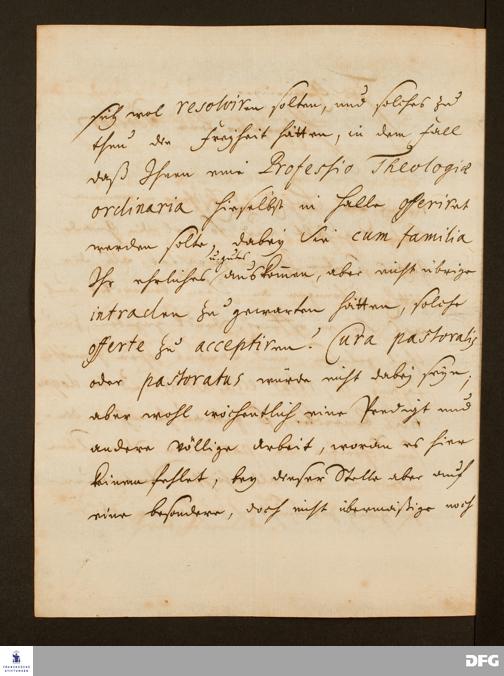 sich wol resolviren solten, und solches zu
thun die Freyheit hätten, in dem Fall
daß Ihnen eine Professio Theologiæ
ordinaria hieselbst in Halle offeriret
werden solte, dabey Sie cum familia
Ihr ehrliches u. gutes auskommen, aber nicht übrige
intraden zu gewarten hätten, solche
offerte zu acceptiren? Cura pastoralis
oder pastoratus würde nicht dabey seyn;
aber wohl wöchentlich eine Predigt und
andere völlige Arbeit, woran es hier
keinem fehlet, bey dieser Stelle aber auch
eine besondere, doch nicht übermäßige noch
FRANCKESCHE
STIFTUNGEN
DFG